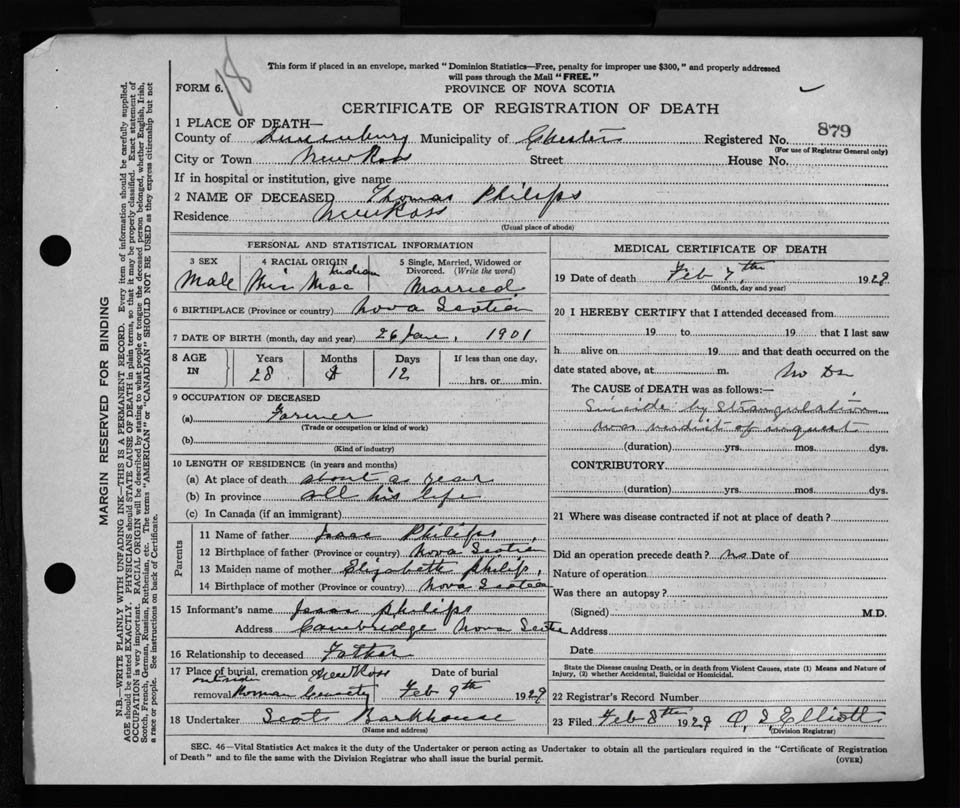 18
This form if placed in an envelope, marked "Dominion Statistics—Free, penalty for improper use $300," and properly addressed
will pass through the Mail "FREE."
FORM 6.
PROVINCE OF NOVA SCOTIA
CERTIFICATE OF REGISTRATION OF DEATH
1 PLACE OF DEATH—
County of Lunenburg Municipality of Chester Registered No. 879
(For use of Registrar General only)
City or Town New Ross Street House No.
If in hospital or institution, give name
2 NAME OF DECEASED Thomas Philips
Residence New Ross
(Usual place of abode)
PERSONAL AND STATISTICAL INFORMATION
3 SEX
Male
4 RACIAL ORIGIN
Mic Mac Indian
5 Single, Married, Widowed or
Divorced. (Write the word)
Married
6 BIRTHPLACE (Province or country) Nova Scotian
7 DATE OF BIRTH (month, day and year) 26 Jan, 1901
8 AGE IN
Years Months Days If less than one day,
28 12 hrs. or min.
9 OCCUPATION OF DECEASED
(a) Farmer
(Trade or occupation or kind of work)
(b)
(Kind of industry)
10 LENGTH OF RESIDENCE (in years and months)
(a) At place of death about a year
(b) In province all his life
(c) In Canada (if an immigrant)
Parents
11 Name of father Isaac Philips
12 Birthplace of father (Province or country) Nova Scotian
13 Maiden name of mother Elizabeth Philip,
14 Birthplace of mother (Province or country) Nova Scotian
15 Informant's name Isaac Philips
Address Cambridge Nova Scotia
16 Relationship to deceased Father
17 Place of burial, cremation New Ross Date of burial
removal Roman Feb 9th 1929
18 Undertaker Scott Barkhouse
(Name and address)
MEDICAL CERTIFICATE OF DEATH
19 Date of death Feb 7th 1929
(Month, day and year)
20 I HEREBY CERTIFY that I attended deceased from
19 to 19 that I last saw
h alive on 19 and that death occurred on the
date stated above, at m. No Dr
The CAUSE of DEATH was as follows:—
Suicide by strangulation
was verdict of inquest
(duration) yrs. mos. dys.
CONTRIBUTORY
(duration) yrs. mos. dys.
21 Where was disease contracted if not at place of death?
Did an operation precede death? no Date of
Nature of operation
Was there an autopsy?
(Signed) M.D.
Address
Date
State the Disease causing Death, or in death from Violent Causes, state (1) Means and Nature of
Injury, (2) whether Accidental, Suicidal or Homicidal.
22 Registrar's Record Number
23 Filed Feb 8th 1929 O. S. Elliott
(Division Registrar)
SEC. 46—Vital Statistics Act makes it the duty of the Undertaker or person acting as Undertaker to obtain all the particulars required in the "Certificate of Registration
of Death" and to file the same with the Division Registrar who shall issue the burial permit.
(OVER)
MARGIN RESERVED FOR BINDING
N.B.—WRITE PLAINLY WITH UNFADING INK—THIS IS A PERMANENT RECORD. Every item of information should be carefully supplied.
AGE should be stated EXACTLY. PHYSICIANS should STATE CAUSE OF DEATH in plain terms, so that it may be properly classified. Exact statement of
OCCUPATION is very important. RACIAL ORIGIN will be described by stating to what people or tongue the deceased person belonged, whether English, Irish,
Scotch, French, German, Russian, Ruthenian, etc. The terms "AMERICAN" or "CANADIAN" SHOULD NOT BE USED as they express citizenship but not
a race or people. See instructions on back of Certificate.